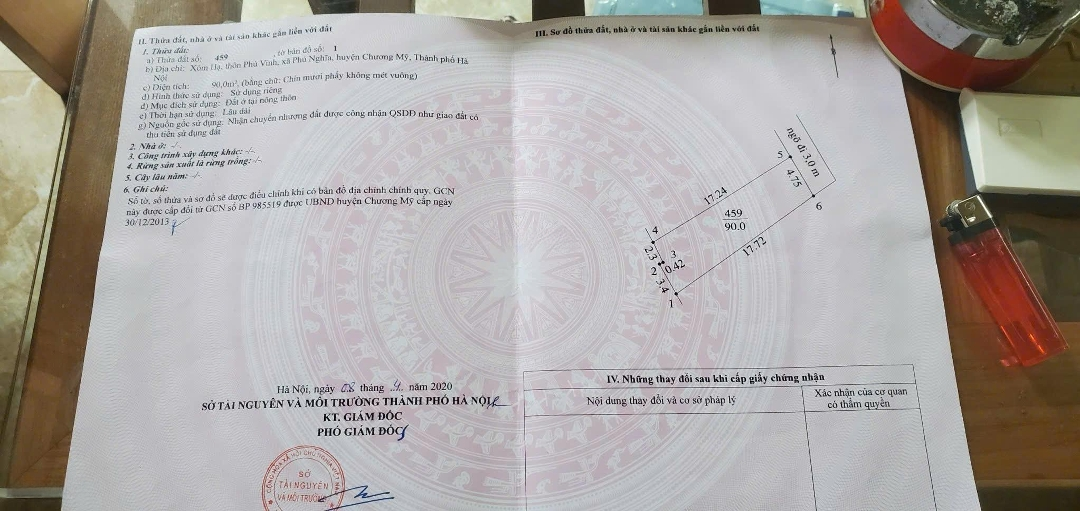 II. Thửa đất, nhà ở và tài sản khác gắn liền với đất
1. Thửa đất:
a) Thửa đất số: 459 , tờ bản đồ số: 1
b) Địa chỉ: Xóm Hạ, thôn Phú Vinh, xã Phú Nghĩa, huyện Chương Mỹ, Thành phố Hà
Nội
c) Diện tích: 90,0m², (bằng chữ: Chín mươi phẩy không mét vuông)
d) Hình thức sử dụng: Sử dụng riêng
đ) Mục đích sử dụng: Đất ở tại nông thôn
e) Thời hạn sử dụng: Lâu dài
g) Nguồn gốc sử dụng: Nhận chuyển nhượng đất được công nhận QSDĐ như giao đất có
thu tiền sử dụng đất
2. Nhà ở: -/-
3. Công trình xây dựng khác: -/-
4. Rừng sản xuất là rừng trồng: -/-
5. Cây lâu năm: -/-
6. Ghi chú:
Số tờ, số thửa và sơ đồ sẽ được điều chỉnh khi có bản đồ địa chính chính quy. GCN
này được cấp đổi từ GCN số BP 985519 được UBND huyện Chương Mỹ cấp ngày
30/12/2013
Hà Nội, ngày 08 tháng năm 2020
SỞ TÀI NGUYÊN VÀ MÔI TRƯỜNG THÀNH PHỐ HÀ NỘI
KT. GIÁM ĐỐC
PHÓ GIÁM ĐỐC
SỞ
TÀI NGUYÊN
VÀ MÔI TRƯỜNG
III. Sơ đồ thửa đất, nhà ở và tài sản khác gắn liền với đất
ngõ đi 3,0 m
5
4.75
6
17.24
459
90.0
17.72
4
2.3
3
2
0.42
3.4
1
IV. Những thay đổi sau khi cấp giấy chứng nhận
Nội dung thay đổi và cơ sở pháp lý
Xác nhận của cơ quan
có thẩm quyền